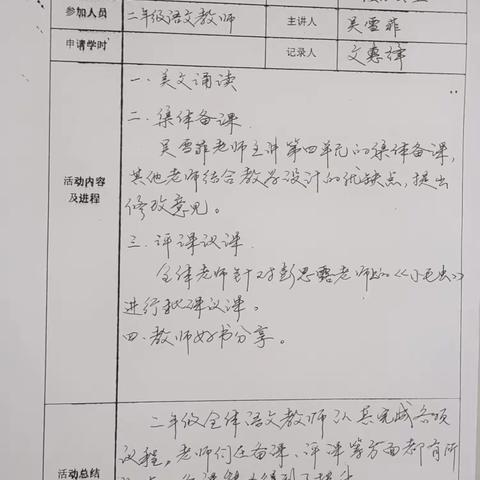 参加人员 二年级语文教师 主讲人 吴雪菲
申请学时 记录人 文惠
一、美文诵读
二、集体备课
吴雪菲老师主讲第四单元的集体备课,
其他老师结合教学设计的优缺点,提出
活动内容
及进程
修改意见。
三、评课议课
全体老师针对彭思露老师上的《小毛虫》
进行评课议课。
四、教师好书分享。
二年级全体语文教师认真完成各项
议程,老师们在备课、评课等方面都有所
活动总结